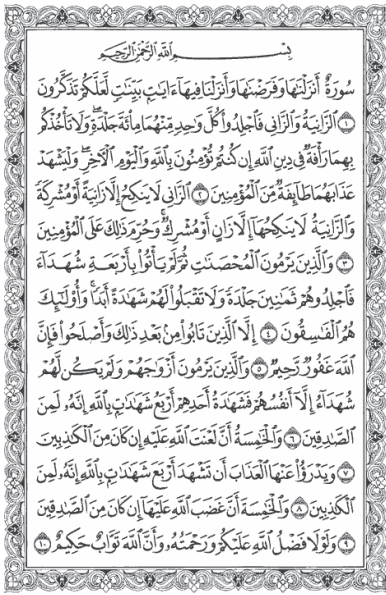 بِسْمِ اللَّهِ الرَّحْمَٰنِ الرَّحِيمِ
سُورَةٌ أَنزَلْنَاهَا وَفَرَضْنَاهَا وَأَنزَلْنَا فِيهَا آيَاتٍ بَيِّنَاتٍ لَّعَلَّكُمْ تَذَكَّرُونَ
١ الزَّانِيَةُ وَالزَّانِي فَاجْلِدُوا كُلَّ وَاحِدٍ مِّنْهُمَا مِائَةَ جَلْدَةٍ وَلَا تَأْخُذْكُم
بِهِمَا رَأْفَةٌ فِي دِينِ اللَّهِ إِن كُنتُمْ تُؤْمِنُونَ بِاللَّهِ وَالْيَوْمِ الْآخِرِ وَلْيَشْهَدْ
عَذَابَهُمَا طَائِفَةٌ مِّنَ الْمُؤْمِنِينَ ٢ الزَّانِي لَا يَنكِحُ إِلَّا زَانِيَةً أَوْ مُشْرِكَةً
وَالزَّانِيَةُ لَا يَنكِحُهَا إِلَّا زَانٍ أَوْ مُشْرِكٌ وَحُرِّمَ ذَٰلِكَ عَلَى الْمُؤْمِنِينَ
٣ وَالَّذِينَ يَرْمُونَ الْمُحْصَنَاتِ ثُمَّ لَمْ يَأْتُوا بِأَرْبَعَةِ شُهَدَاءَ
فَاجْلِدُوهُمْ ثَمَانِينَ جَلْدَةً وَلَا تَقْبَلُوا لَهُمْ شَهَادَةً أَبَدًا وَأُولَٰئِكَ
هُمُ الْفَاسِقُونَ ٤ إِلَّا الَّذِينَ تَابُوا مِن بَعْدِ ذَٰلِكَ وَأَصْلَحُوا فَإِنَّ
اللَّهَ غَفُورٌ رَّحِيمٌ ٥ وَالَّذِينَ يَرْمُونَ أَزْوَاجَهُمْ وَلَمْ يَكُن لَّهُمْ
شُهَدَاءُ إِلَّا أَنفُسُهُمْ فَشَهَادَةُ أَحَدِهِمْ أَرْبَعُ شَهَادَاتٍ بِاللَّهِ إِنَّهُ لَمِنَ
الصَّادِقِينَ ٦ وَالْخَامِسَةُ أَنَّ لَعْنَتَ اللَّهِ عَلَيْهِ إِن كَانَ مِنَ الْكَاذِبِينَ
٧ وَيَدْرَؤُا عَنْهَا الْعَذَابَ أَن تَشْهَدَ أَرْبَعَ شَهَادَاتٍ بِاللَّهِ إِنَّهُ لَمِنَ
الْكَاذِبِينَ ٨ وَالْخَامِسَةَ أَنَّ غَضَبَ اللَّهِ عَلَيْهَا إِن كَانَ مِنَ الصَّادِقِينَ
٩ وَلَوْلَا فَضْلُ اللَّهِ عَلَيْكُمْ وَرَحْمَتُهُ وَأَنَّ اللَّهَ تَوَّابٌ حَكِيمٌ ١٠